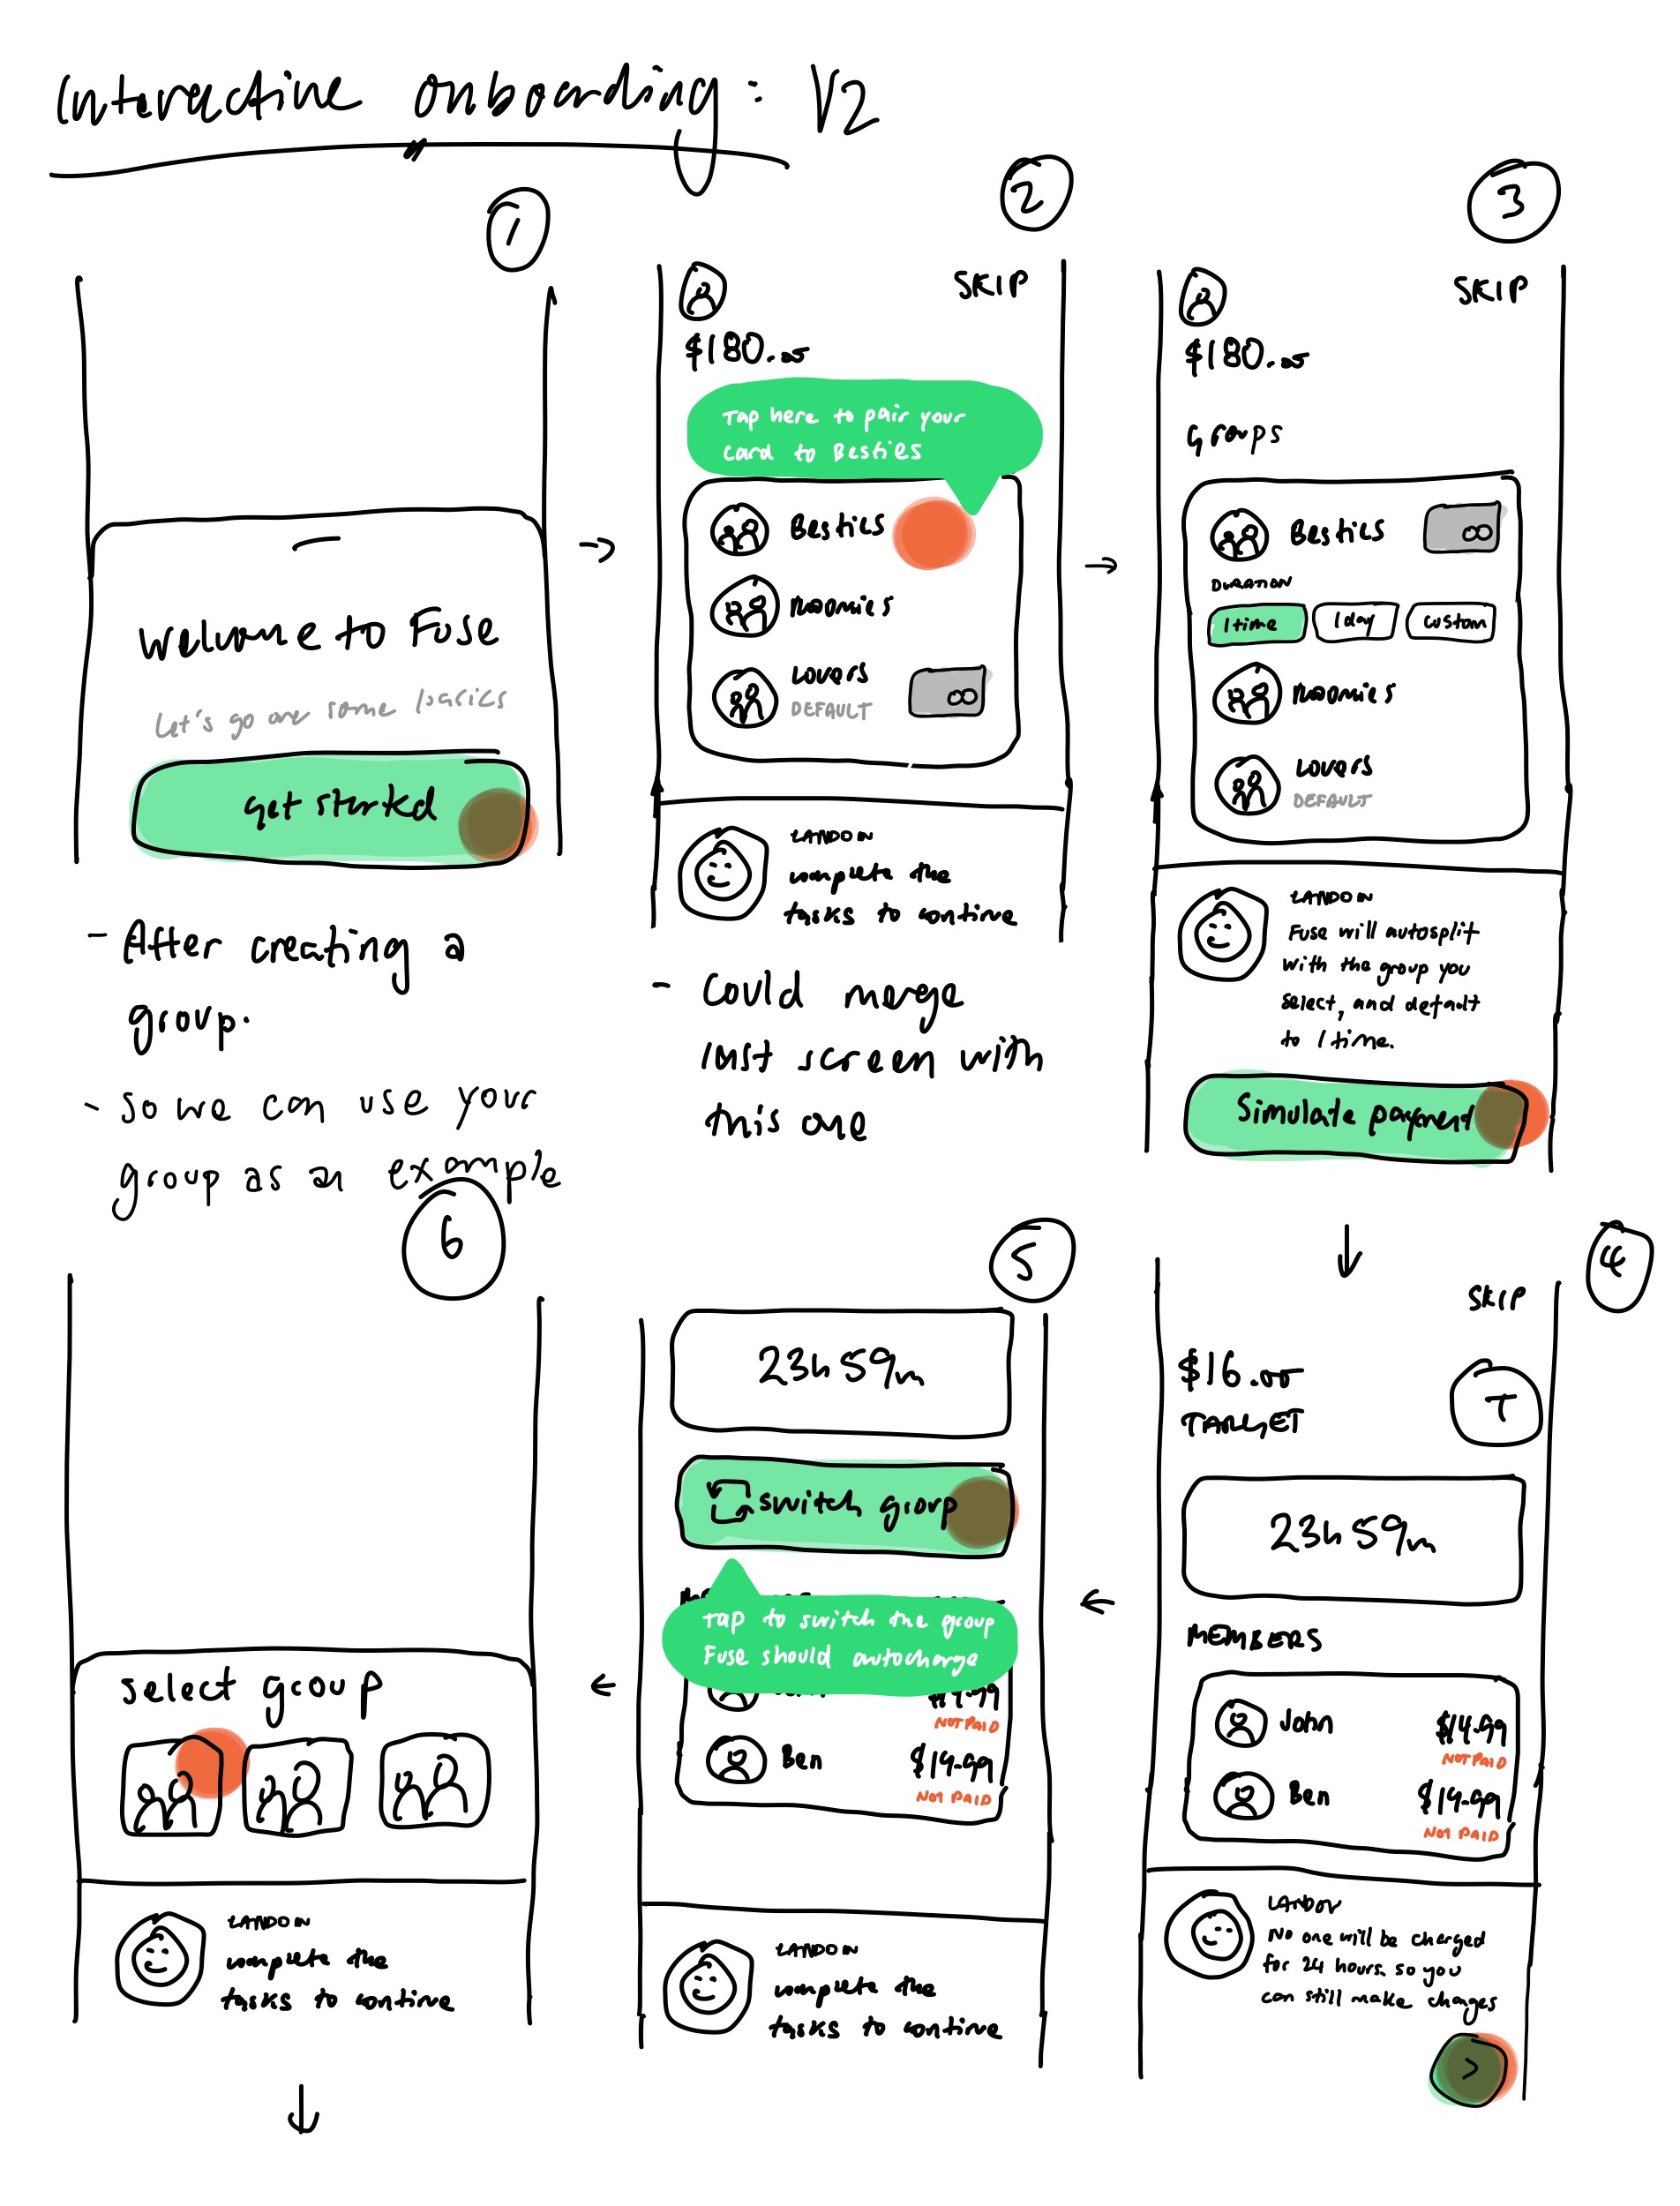 Interactive onboarding: V2
1
Welcome to Fuse
Let's go over some basics
Get started
- After creating a
group.
- so we can use your
group as an example
2
SKIP
$180.00
Tap here to pair your
card to Besties
Besties
Roomies
Lovers
DEFAULT
LANDON
complete the
tasks to continue
- Could merge
last screen with
this one
3
SKIP
$180.00
Groups
Besties
DURATION
1 time
1 day
custom
Roomies
Lovers
DEFAULT
LANDON
Fuse will autosplit
with the group you
select, and default
to 1 time.
Simulate payment
4
SKIP
$16.00
TARGET
T
23h 59m
MEMBERS
John
$14.99
NOT PAID
Ben
$14.99
NOT PAID
LANDON
No one will be charged
for 24 hours. so you
can still make changes
>
5
23h 59m
switch group
Tap to switch the group
Fuse should autocharge
$14.99
NOT PAID
Ben
$14.99
NOT PAID
LANDON
complete the
tasks to continue
6
Select group
LANDON
complete the
tasks to continue